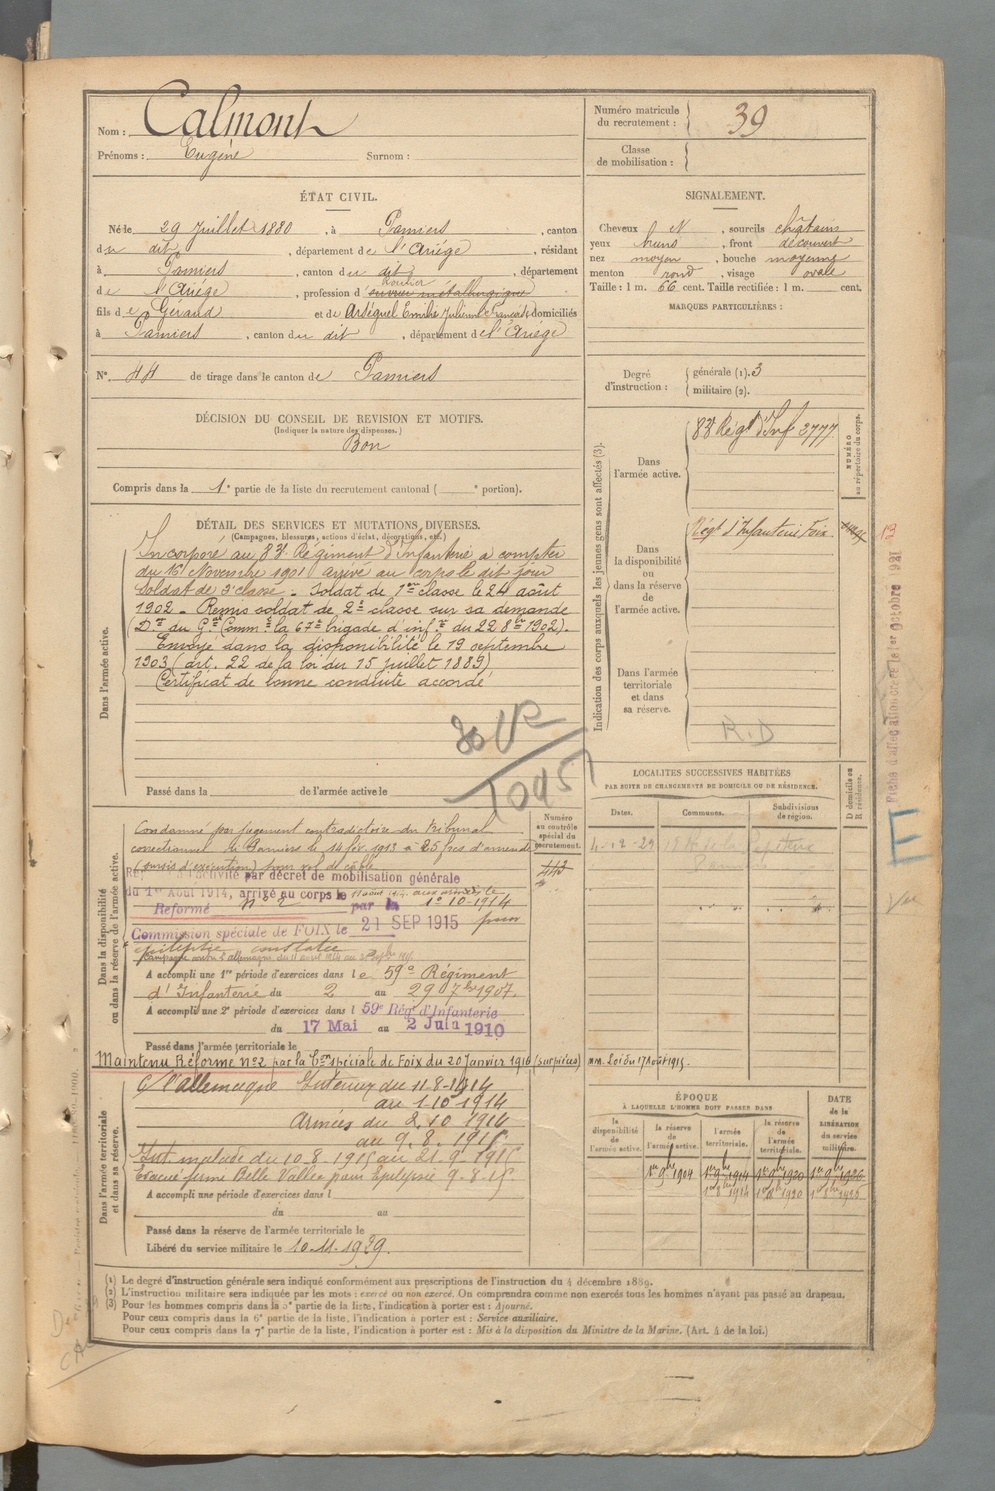 Nom : Calmont
Prénoms : Eugène Surnom :
Numéro matricule du recrutement : 39
Classe de mobilisation :
ÉTAT CIVIL.
Né le 29 Juillet 1880, à Pamiers, canton
du dit, département de l'Ariège, résidant
à Pamiers, canton du dit, département
Routier
de l'Ariège, profession d'ouvrier métallurgique
fils de Géraud et de Arséguel Emilie Julienne Françoise domiciliés
à Pamiers, canton du dit, département de l'Ariège
N° 44 de tirage dans le canton de Pamiers
SIGNALEMENT.
Cheveux N, sourcils châtains
yeux bruns, front découvert
nez moyen, bouche moyenne
menton rond, visage ovale
Taille : 1 m. 66 cent. Taille rectifiée : 1 m. cent.
MARQUES PARTICULIÈRES :
Degré d'instruction : générale (1). 3
militaire (2).
DÉCISION DU CONSEIL DE REVISION ET MOTIFS.
(Indiquer la nature des dispenses.)
Bon
Compris dans la 1e partie de la liste du recrutement cantonal ( e portion).
DÉTAIL DES SERVICES ET MUTATIONS DIVERSES.
(Campagnes, blessures, actions d'éclat, décorations, etc.)
Dans l'armée active.
Incorporé au 83e Régiment d'Infanterie à compter
du 16 Novembre 1901 arrivé au corps le dit jour
Soldat de 2e classe. Soldat de 1ère classe le 24 août
1902. Remis soldat de 2e classe sur sa demande
(Don du Gal Commt la 67e brigade d'infie du 22 8bre 1902).
Envoyé dans la disponibilité le 19 septembre
1903 (art. 22 de la loi du 15 juillet 1889)
Certificat de bonne conduite accordé
Passé dans la de l'armée active le
Indication des corps auxquels les jeunes gens sont affectés (3).
NUMÉRO au répertoire du corps.
Dans l'armée active. 83e Régt d'Inf 3777
Dans la disponibilité ou dans la réserve de l'armée active. Régt d'Infanterie Foix
Dans l'armée territoriale et dans sa réserve.
R.D
Fiche d'affectation créée le 1er Octobre 1921
E
Vu
LOCALITÉS SUCCESSIVES HABITÉES
PAR SUITE DE CHANGEMENTS DE DOMICILE OU DE RÉSIDENCE.
Dates. Communes. Subdivisions de région. D domicile ou R résidence.
Pamiers
Dans la disponibilité ou dans la réserve de l'armée active.
Numéro au contrôle spécial du recrutement.
443
Condamné par jugement contradictoire du Tribunal
correctionnel de Pamiers le 14 fév. 1913 à 25 frcs d'amende
(sursis d'exécution) pour vol de câble
à l'activité par décret de mobilisation générale
du 1er Août 1914, arrivé au corps le 11 août 1914 aux armées le
Réformé n° 2 par la 1°-10-1914
Commission spéciale de FOIX le 21 SEP 1915 pour
épilepsie constatée
A accompli une 1re période d'exercices dans le 59e Régiment
d'Infanterie du 2 au 29 7bre 1907.
A accompli une 2e période d'exercices dans l 59e Rég d'Infanterie
du 17 Mai au 2 Juin 1910
Passé dans l'armée territoriale le
Maintenu Réformé n°2 par la Con spéciale de Foix du 20 Janvier 1916 (sur pièces) Loi du 17 Août 1915.
Dans l'armée territoriale et dans sa réserve.
C/ l'allemagne Intérieur du 11-8-1914
au 1-10-1914
Armées du 2.10 1914
au 9.8.1915
Int malade du 10.8.1915 au 21.9.1915
Evacué ferme Belle Vallée pour Epilepsie 9.8.15.
A accompli une période d'exercices dans l
du au
Passé dans la réserve de l'armée territoriale le
Libéré du service militaire le 10.11.1929.
ÉPOQUE
À LAQUELLE L'HOMME DOIT PASSER DANS
la disponibilité de l'armée active. la réserve de l'armée active. l'armée territoriale. la réserve de l'armée territoriale. DATE de la LIBÉRATION du service militaire.
1er 9bre 1904 1er 9bre 1914 1er 9bre 1920 1er 9bre 1926
(1) Le degré d'instruction générale sera indiqué conformément aux prescriptions de l'instruction du 4 décembre 1889.
(2) L'instruction militaire sera indiquée par les mots : exercé ou non exercé. On comprendra comme non exercés tous les hommes n'ayant pas passé au drapeau.
(3) Pour les hommes compris dans la 5e partie de la liste, l'indication à porter est : Ajourné.
Pour ceux compris dans la 6e partie de la liste, l'indication à porter est : Service auxiliaire.
Pour ceux compris dans la 7e partie de la liste, l'indication à porter est : Mis à la disposition du Ministre de la Marine. (Art. 4 de la loi.)